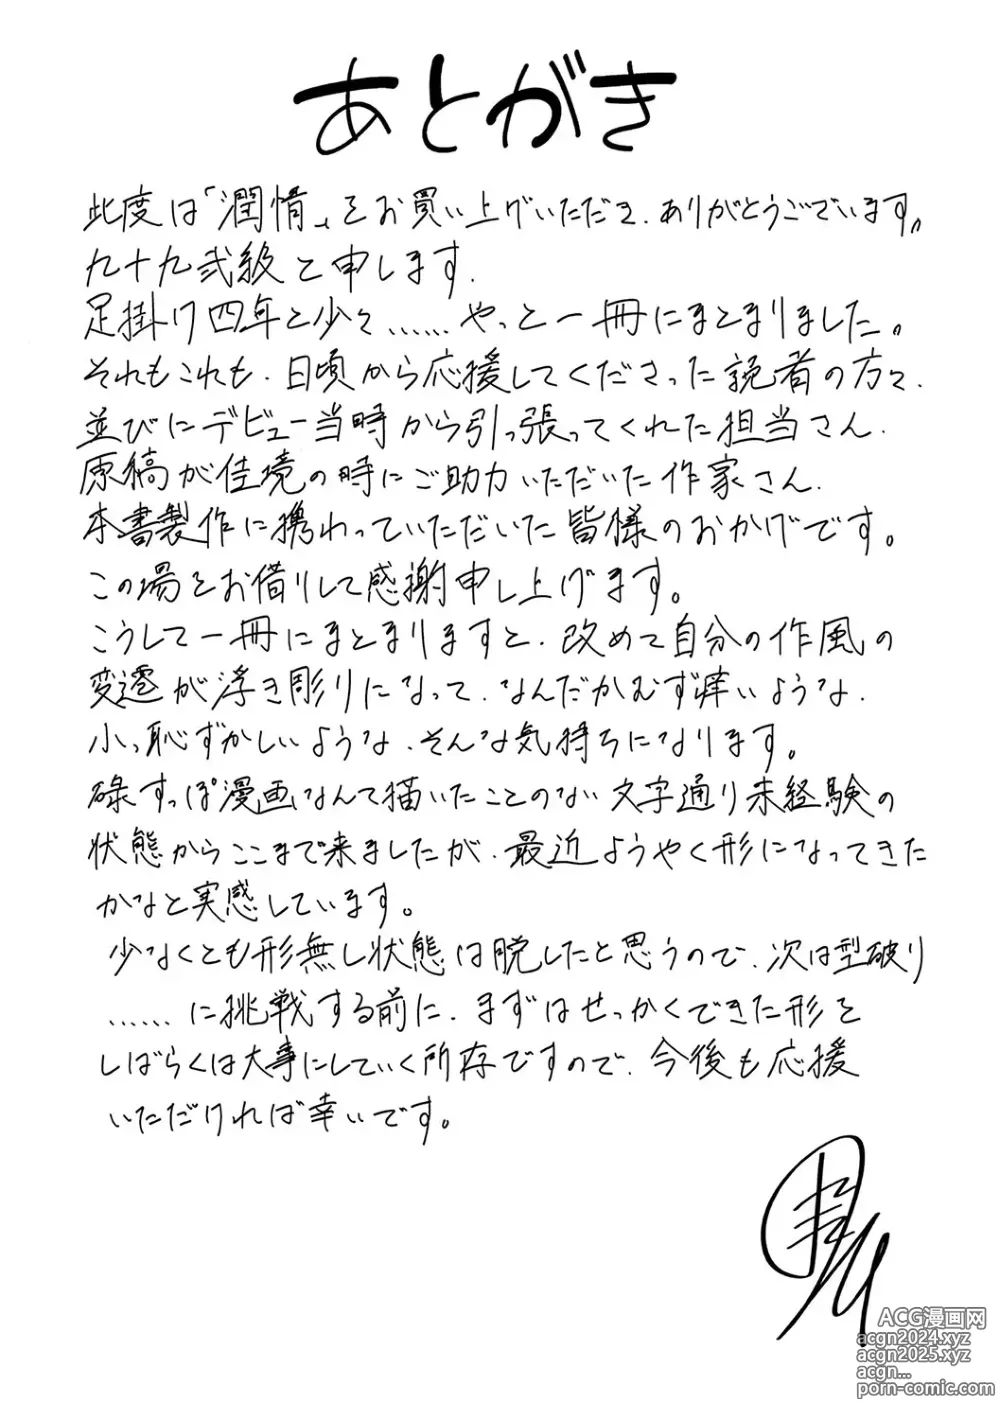 あとがき
此度は「潤情」をお買い上げいただき、ありがとうございます。
九十九弐級と申します。
足掛け四年と少々……やっと一冊にまとまりました。
それもこれも、日頃から応援してくださった読者の方々、
並びにデビュー当時から引っ張ってくれた担当さん、
原稿が佳境の時にご助力いただいた作家さん、
本書製作に携わっていただいた皆様のおかげです。
この場をお借りして感謝申し上げます。
こうして一冊にまとまりますと、改めて自分の作風の
変遷が浮き彫りになって、なんだかむず痒いような、
小っ恥ずかしいような、そんな気持ちになります。
碌すっぽ漫画なんて描いたことのない文字通り未経験の
状態からここまで来ましたが、最近ようやく形になってきた
かなと実感しています。
少なくとも形無し状態は脱したと思うので、次は型破り
……に挑戦する前に、まずはせっかくできた形を
しばらくは大事にしていく所存ですので、今後も応援
いただければ幸いです。
ACG漫画网
acgn2024.xyz
acgn2025.xyz
acgn...
porn-comic.com